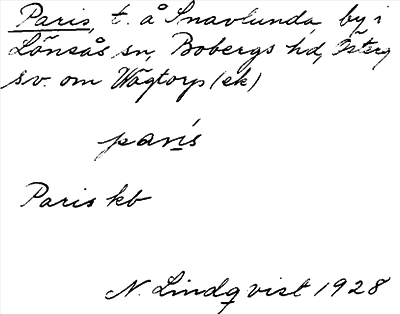 Paris, t. å Snavlunda by i
Lönsås sn, Bobergs hd, Österg
s.v. om Wägtorp (ek)
parìs
Paris kb
N. Lindqvist 1928